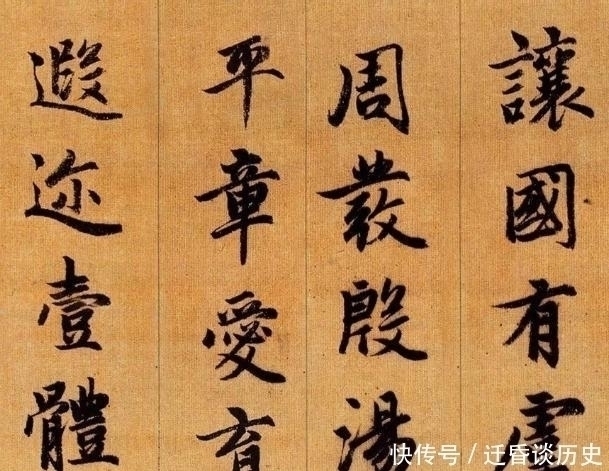 讓國有虞
周發殷湯
平章愛育
遐迩壹體
快传号 / 迁昏谈历史